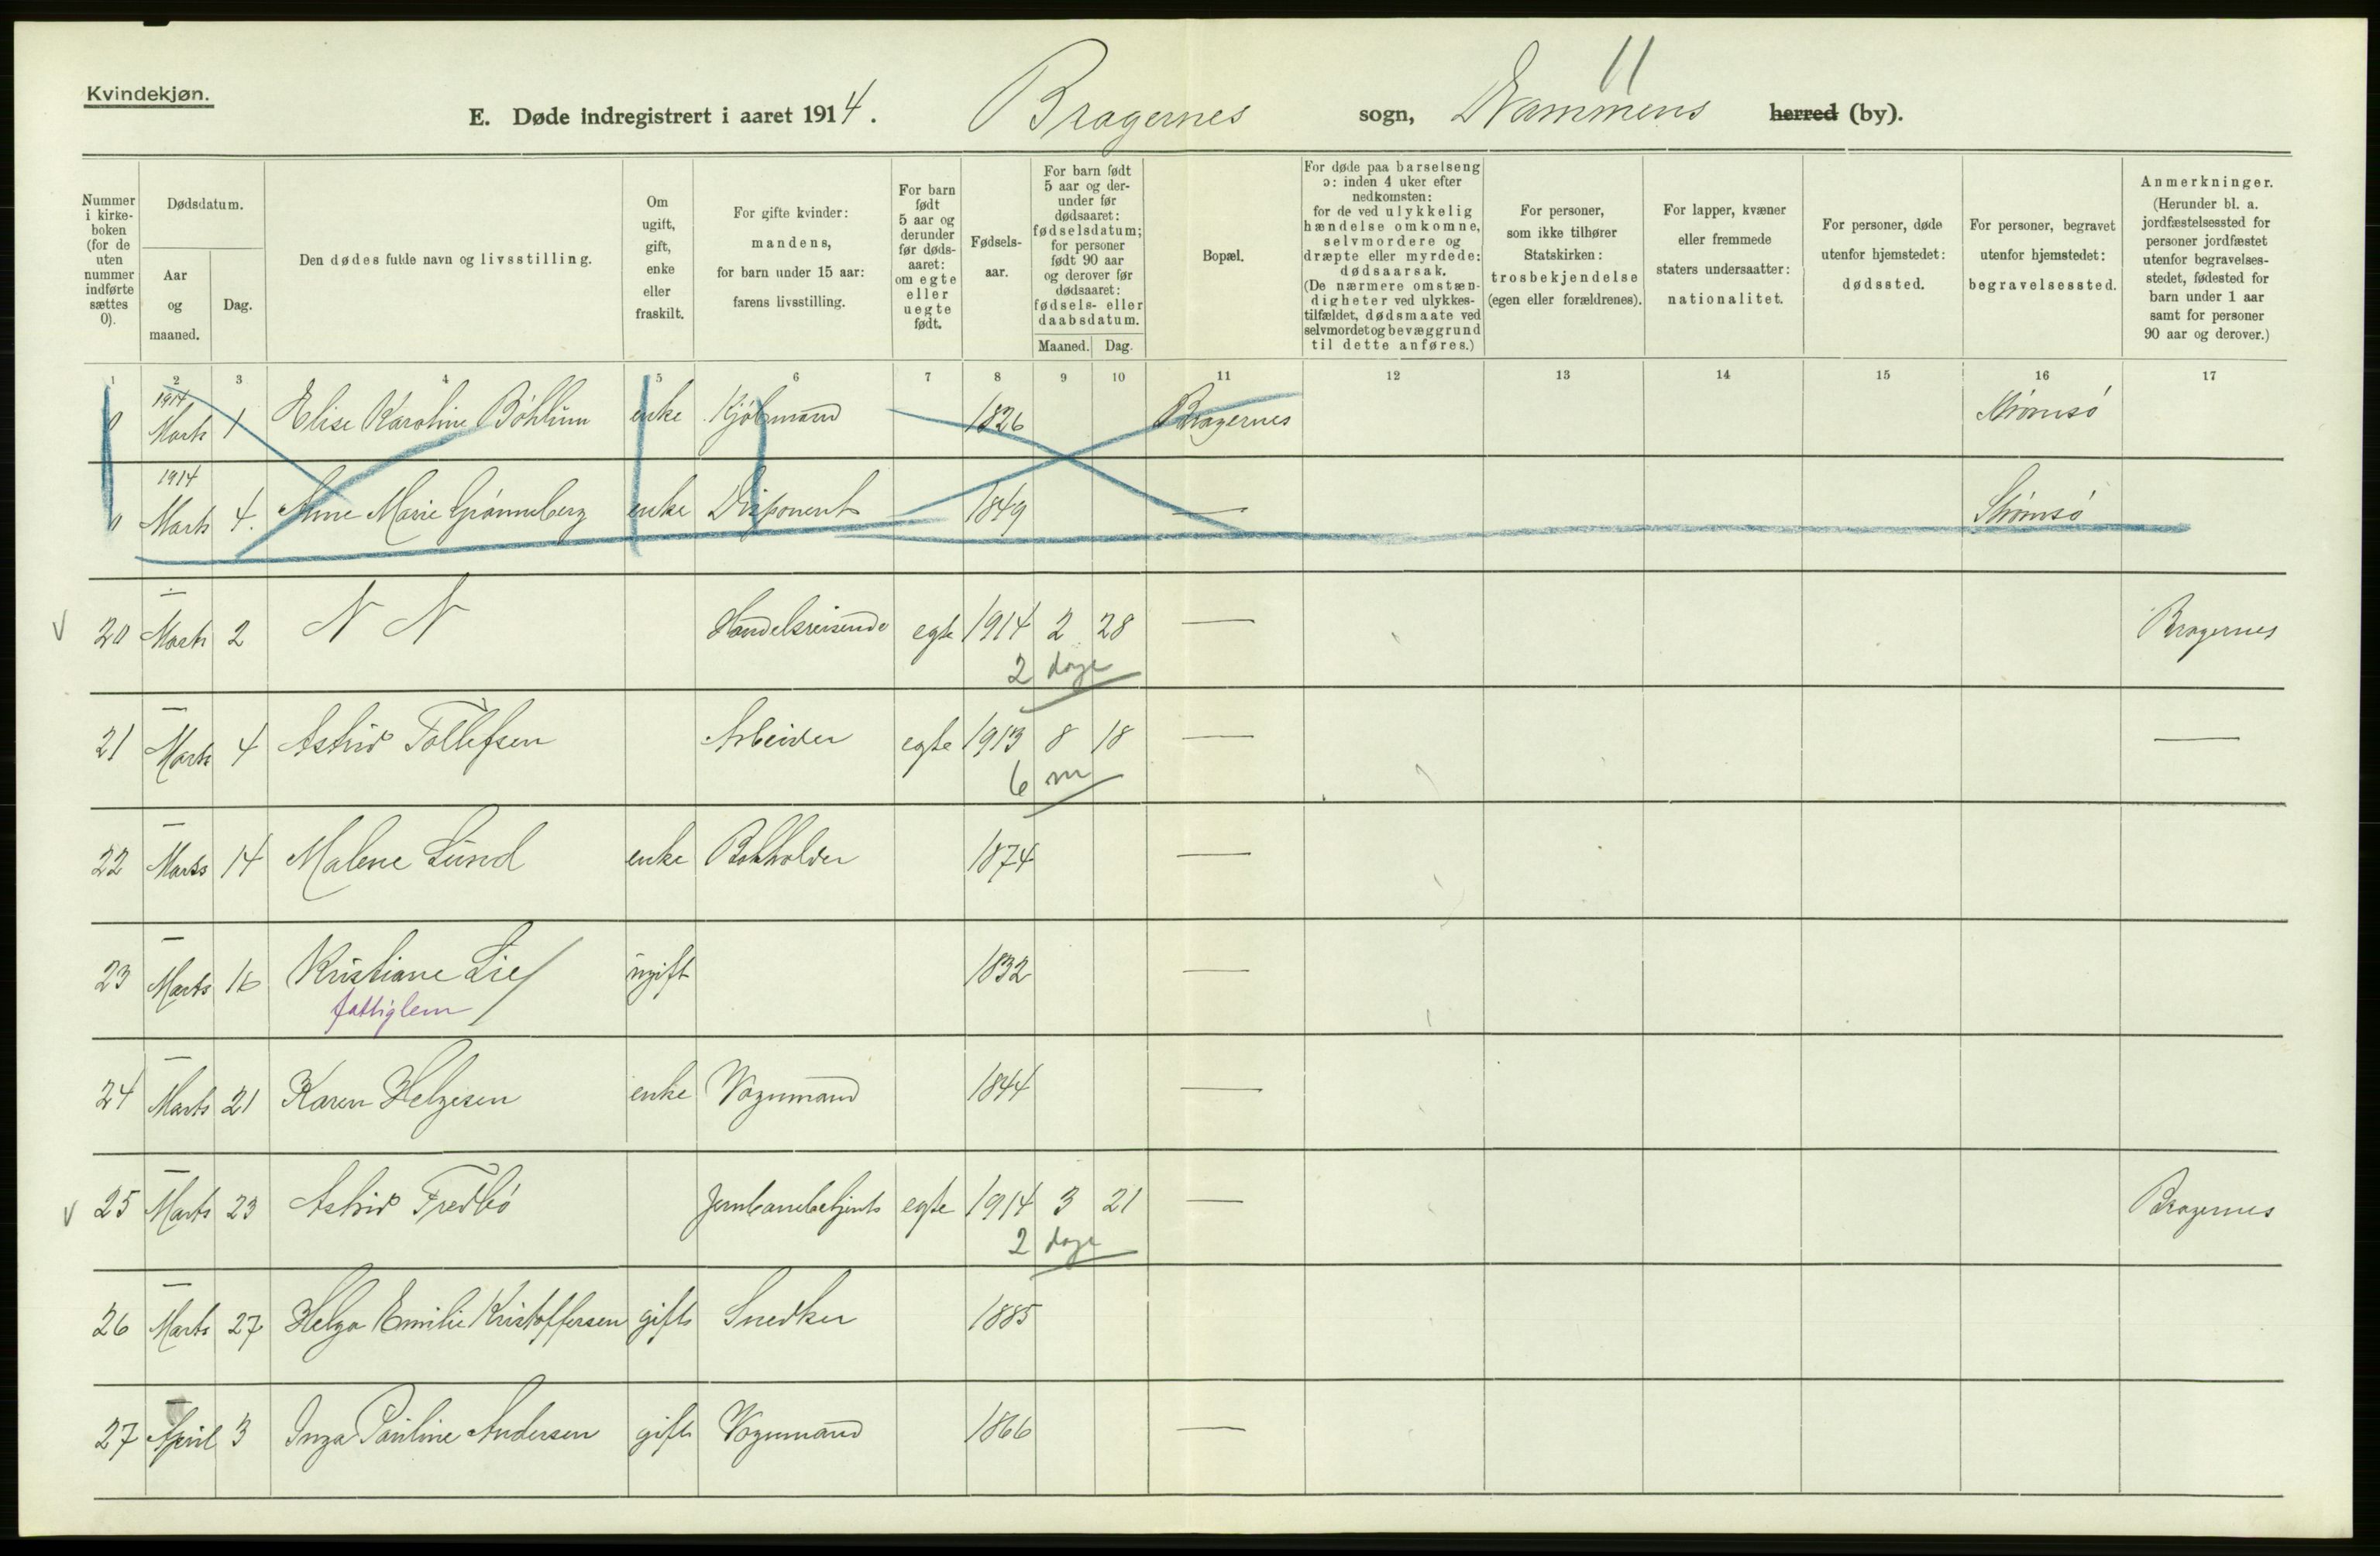 Kvindekjøn.
11
E. Døde indregistrert i aaret 1914. Bragernes sogn, Drammens herred (by).
Nummer i kirke- boken (for de uten nummer indførte sættes 0).
Dødsdatum.
Aar og maaned.
Dag.
Den dødes fulde navn og livsstilling.
Om ugift, gift, enke eller fraskilt.
For gifte kvinder: mandens, for barn under 15 aar: farens livsstilling.
For barn født 5 aar og derunder før døds- aaret: om egte eller uegte født.
Fødsels- aar.
For barn født 5 aar og der- under før dødsaaret: fødselsdatum; for personer født 90 aar og derover før dødsaaret: fødsels- eller daabsdatum.
Maaned. Dag.
Bopæl.
For døde paa barselseng ɔ: inden 4 uker efter nedkomsten: for de ved ulykkelig hændelse omkomne, selvmordere og dræpte eller myrdede: dødsaarsak. (De nærmere omstæn- digheter ved ulykkes- tilfældet, dødsmaate ved selvmordet og bevæggrund til dette anføres.)
For personer, som ikke tilhører Statskirken: trosbekjendelse (egen eller forældrenes).
For lapper, kvæner eller fremmede staters undersaatter: nationalitet.
For personer, døde utenfor hjemstedet: dødssted.
For personer, begravet utenfor hjemstedet: begravelsessted.
Anmerkninger. (Herunder bl. a. jordfæstelsessted for personer jordfæstet utenfor begravelses- stedet, fødested for barn under 1 aar samt for personer 90 aar og derover.)
1 2 3 4 5 6 7 8 9 10 11 12 13 14 15 16 17
1914
0 Marts 1 Elise Karoline Böhlum enke Kjøbmand 1826 Bragernes Strømsö
1914
0 Marts 4. Anne Marie Grönneberg enke Disponent 1849 — Strømsö
20 Marts 2 N N Handelsreisende egte 1914 2 28 — Bragernes
2 dage
21 Marts 4 Astrid Tollefsen Arbeider egte 1913 8 18 — —
6 m
22 Marts 14 Malene Lund enke Bokholder 1874 —
23 Marts 16 Kristiane Lie ugift 1832 —
fattiglem
24 Marts 21 Karen Helgesen enke Vognmand 1844 —
25 Marts 23 Astrid Fredbö Jernbanebetjent egte 1914 3 21 — Bragernes
2 dage
26 Marts 27 Helga Emilie Kristoffersen gift Snedker 1885
27 April 3 Inga Pauline Andersen gift Vognmand 1866 —